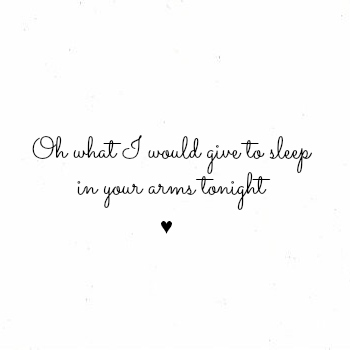 Oh what I would give to sleep
in your arms tonight
♥